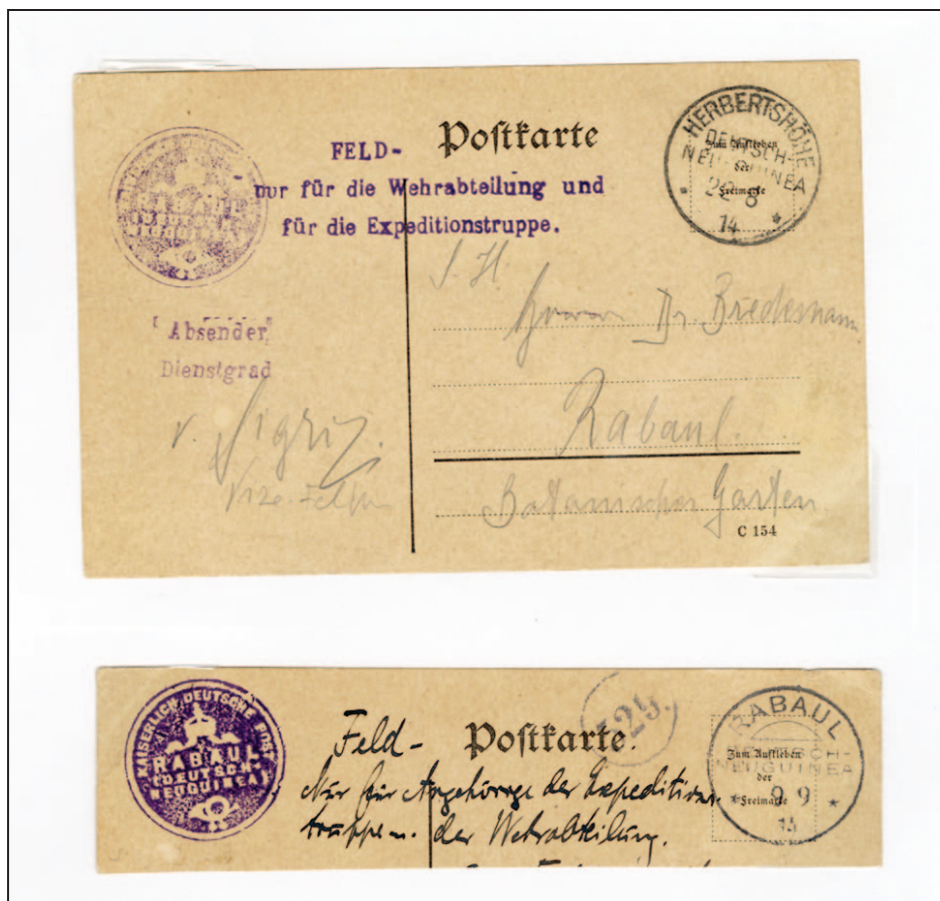 FELD- Postkarte
nur für die Wehrabteilung und
für die Expeditionstruppe.
HERBERTSHÖHE
DEUTSCH-
NEUGUINEA
22 8
14
Zum Aufkleben
der
Freimarke
S. H.
Herrn Dr. Bredemann
Rabaul.
Botanischer Garten
C 154
"Absender"
Dienstgrad
v.
KAISERLICH DEUTSCHE POST
RABAUL
(DEUTSCH-
NEUGUINEA)
Feld- Postkarte.
Nur für Angehörige der Expeditions-
truppe u. der Wehrabteilung.
RABAUL
DEUTSCH-
NEUGUINEA
9 9
14
Zum Aufkleben
der
Freimarke